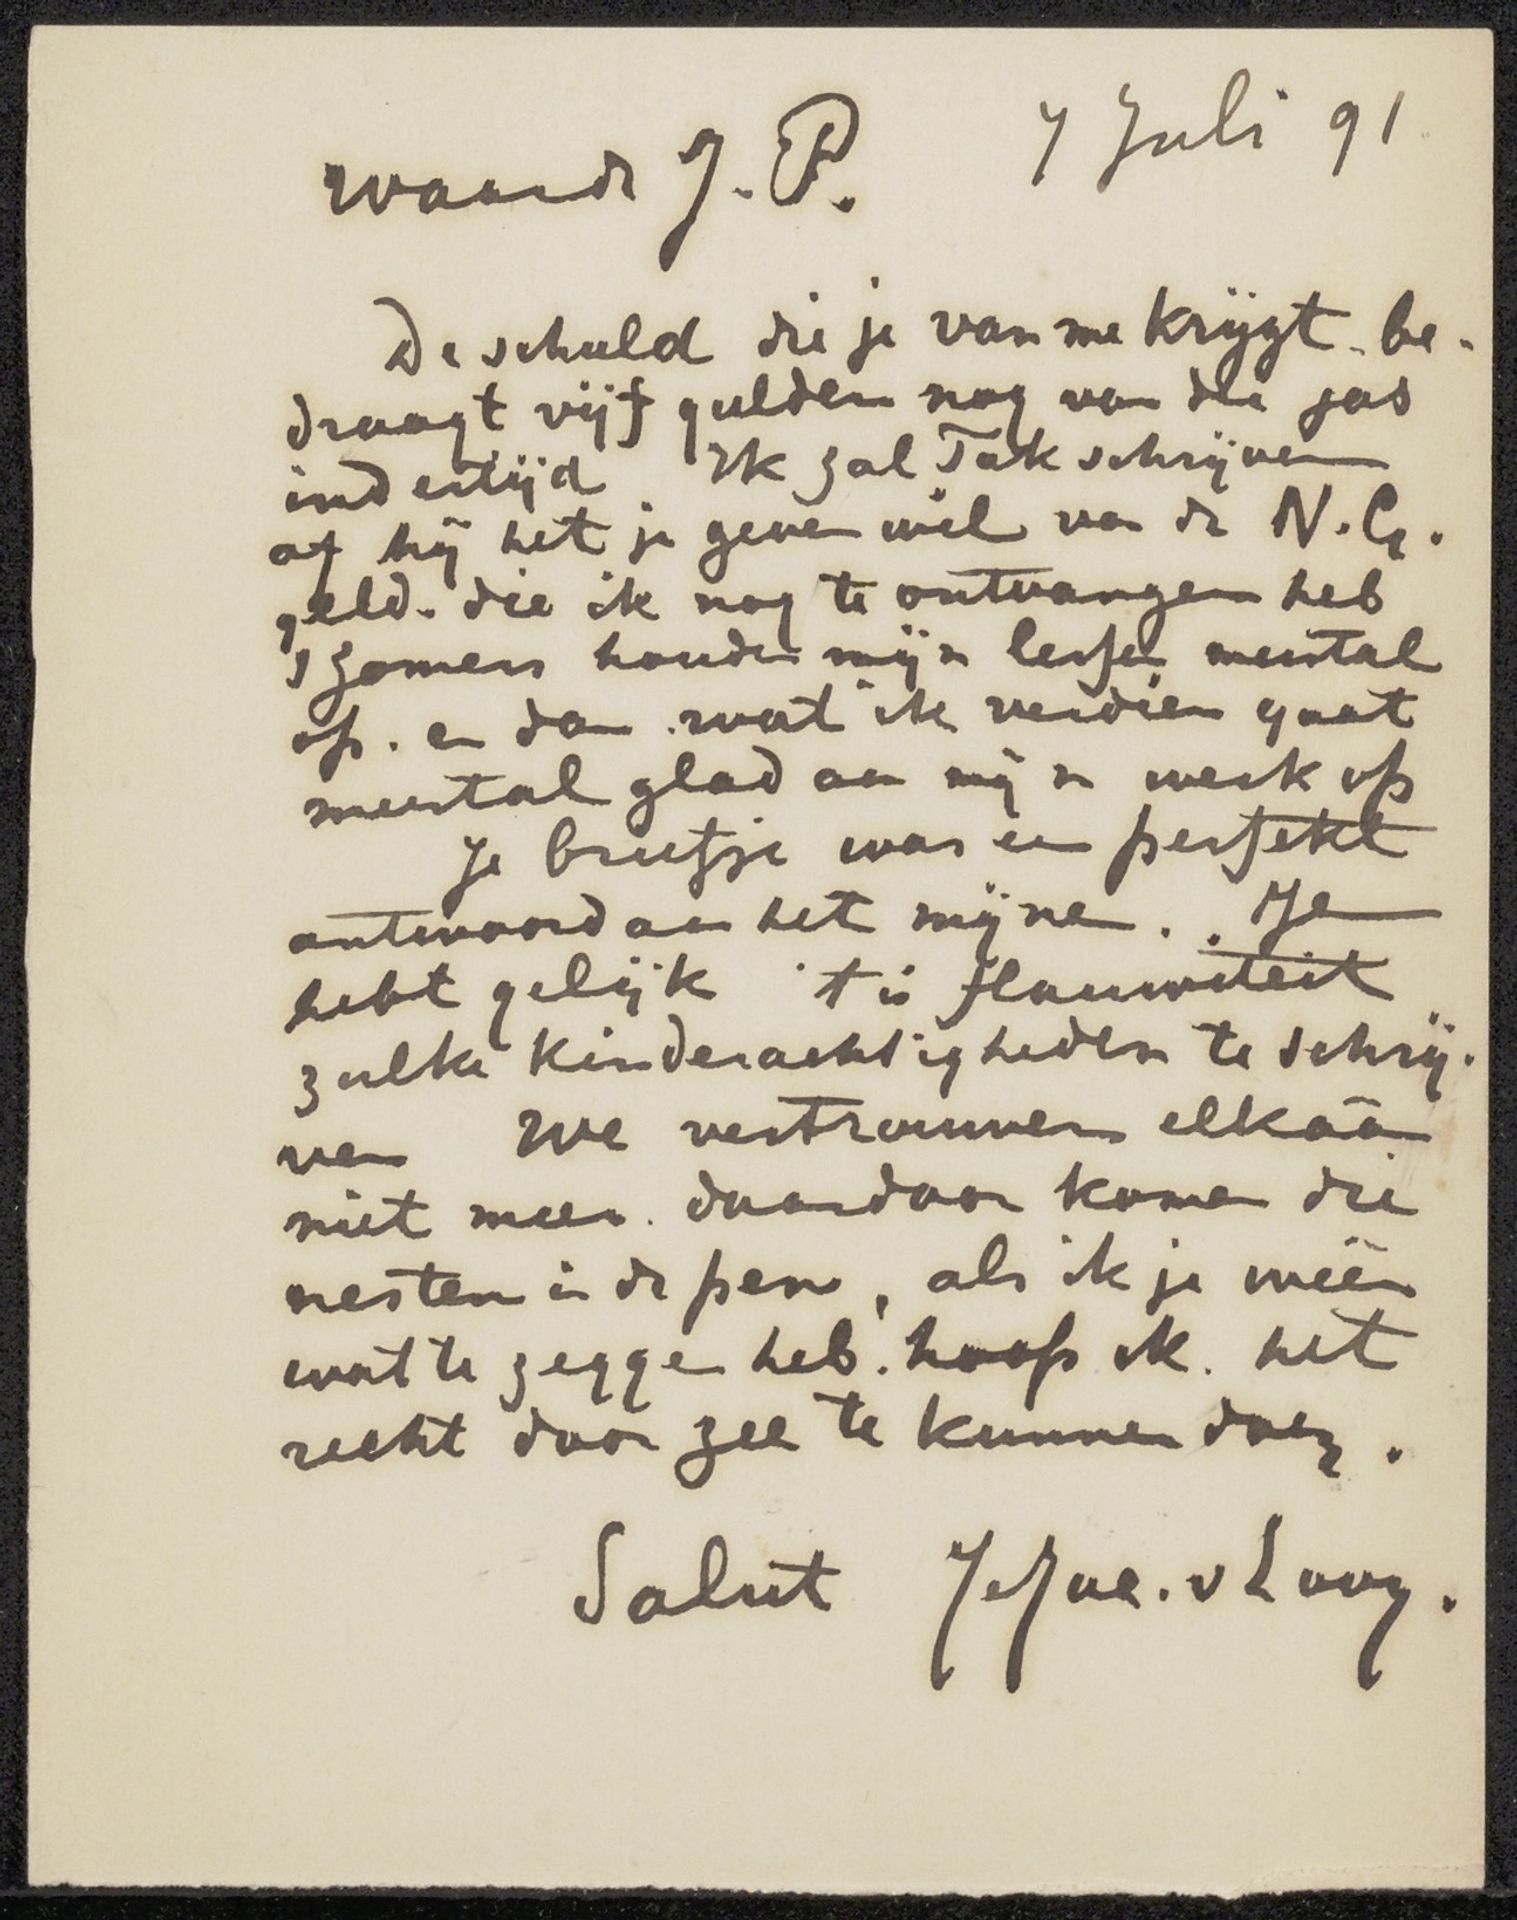 7 Juli 91
waarde J. P.
De schuld die je van me krijgt be-
draagt vijf gulden nog van die jas
indertijd. Ik zal Tak schrijven
of hij het je geven wil van de N. G.
geld. die ik nog te ontvangen heb
s zomers houden mijn lessen meestal
op. en dan wat ik verdien gaat
meestal glad aan mijn werk op
Je briefje was een perfekt
antwoord aan het mijne. Je
hebt gelijk 't is flauwiteit
zulke kinderachtigheden te schrij-
ven We vertrouwen elkaar
niet meer. daardoor komen die
nesten in de pen, als ik je weer
wat te zeggen heb. hoop ik. het
recht door zee te kunnen doen.
Salut Jac. v Looy.